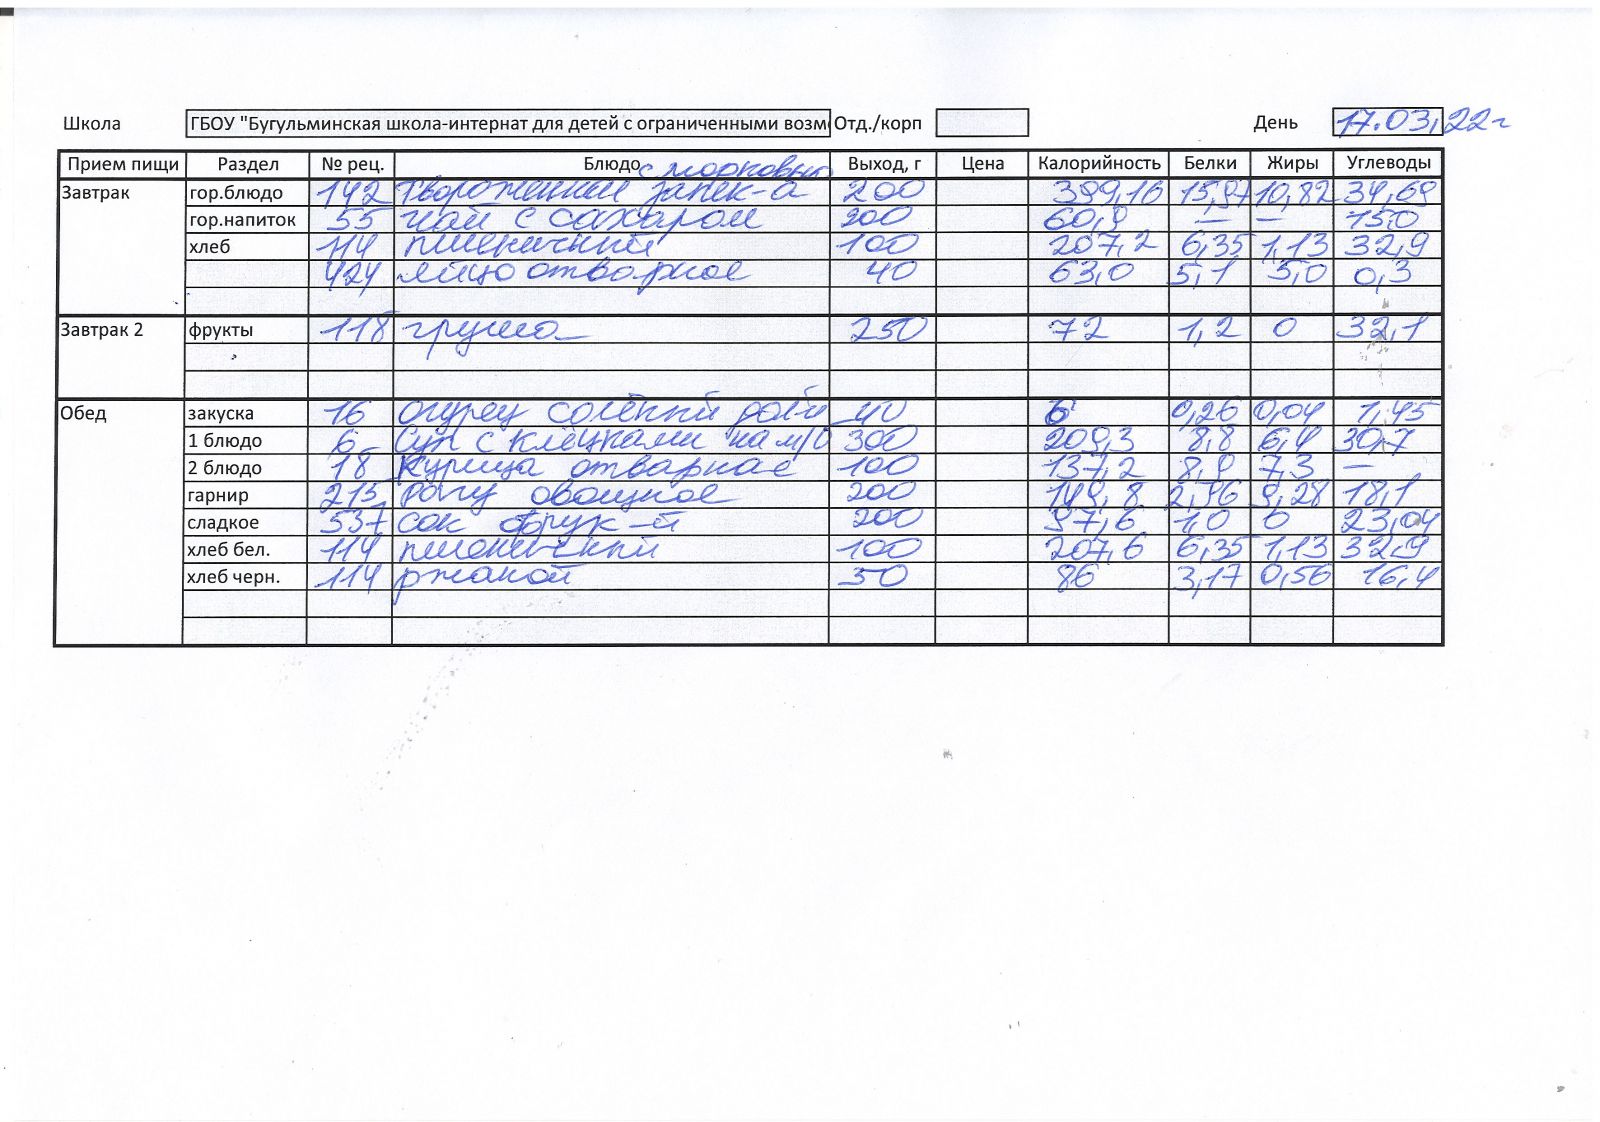 Школа ГБОУ "Бугульминская школа-интернат для детей с ограниченными возм Отд./корп День 17.03.22г
Прием пищи Раздел № рец. Блюдо Выход, г Цена Калорийность Белки Жиры Углеводы
с морковью
Завтрак гор.блюдо 142 творожный запек-а 200 399,16 15,97 10,82 34,69
гор.напиток 55 чай с сахаром 200 60,9 – – 15,0
хлеб 114 пшеничный 100 207,2 6,35 1,13 32,9
424 яйцо отварное 40 63,0 5,1 5,0 0,3
Завтрак 2 фрукты 118 груша 250 72 1,2 0 32,1
Обед закуска 16 огурец солёный 40 6 0,26 0,04 1,45
1 блюдо 6 Суп с клёцками на м/б 300 209,3 8,8 6,4 30,7
2 блюдо 18 Курица отварная 100 137,2 8,9 7,3 –
гарнир 215 рагу овощное 200 149,8 2,76 9,28 18,1
сладкое 537 сок фрук-й 200 97,6 1,0 0 23,04
хлеб бел. 114 пшеничный 100 207,6 6,35 1,13 32,9
хлеб черн. 114 ржаной 50 86 3,17 0,56 16,4